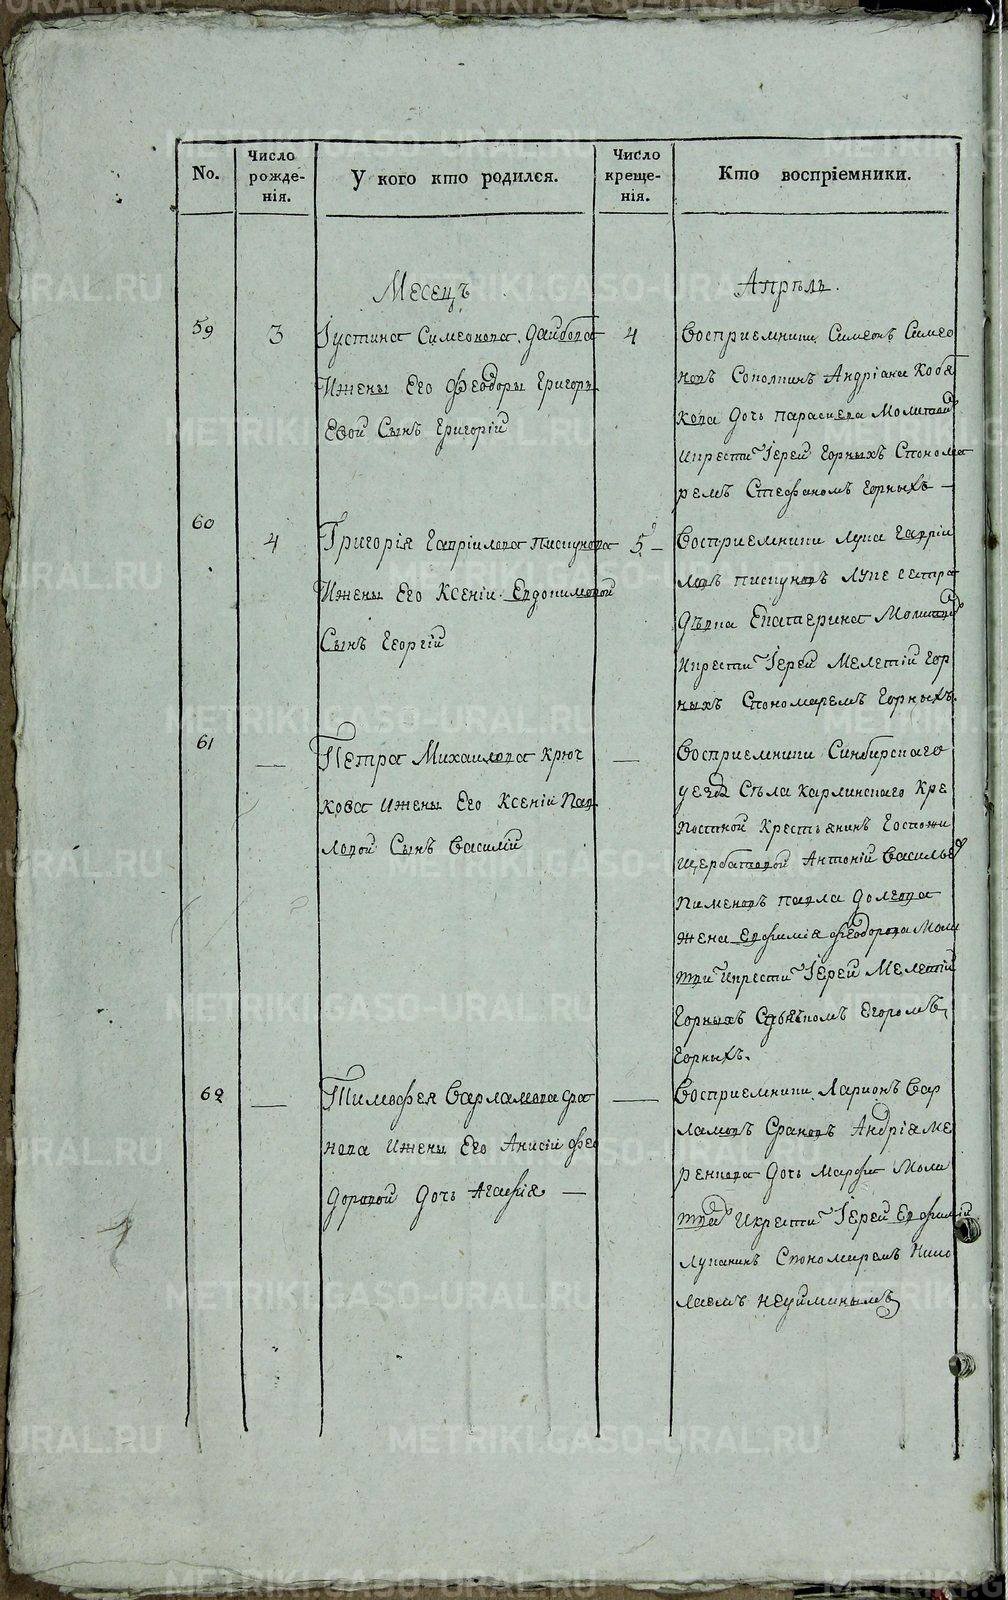 No.
Число рожде-нія.
У кого кто родился.
Число креще-нія.
Кто воспріемники.
Месецъ Апрель.
59 3 Іустина Симеонова Дайбова 4
Ижены Его Феодоры Григорь
Евой Сынъ Григорій
Восприемники Симеонъ Симео
новъ Андріана Кобя
кова Дочь Параскева Молитвой
Икрести Іерей Горныхъ Спонома
ремъ Стефаномъ Горныхъ —
60 4 Григорія Гавріилова Пискунова 5 —
Ижены Его Ксеніи Евдокимовой
Сынъ Георгій
Восприемники Лука Гавріи
ловъ Пискуновъ Луке сестра
Дѣвка Екатерина Молитвой
Икрести Іерей Мелетій Гор
ныхъ Спономаремъ Горныхъ.
61 — Петра Михаилова Крюч —
кова Ижены Его Ксеніи Пав
ловой Сынъ Василій
Восприемники Синбирскаго
уезда Села Карлинскаго Кре
постной Крестьянинъ Госпожи
Щербатовой Антоній Васильев
Пименовъ Павла Долгова
жена Евфимія Феодорова Моли
тви Икрести Іерей Мелетій
Горныхъ Егоромъ
Горныхъ.
62 — Тимофея Варламова Фра —
нова Ижены Его Анисіи Фео
доровой Дочь Агафія —
Восприемники Ларионъ Вар
ламовъ Андрія Ме
ренкова Дочь Марфа Моли
твой Икрести Іерей Евфимій
Лупанинъ Спономаремъ Нико
лаемъ Неуйминымъ
METRIKI.GASO-URAL.RU